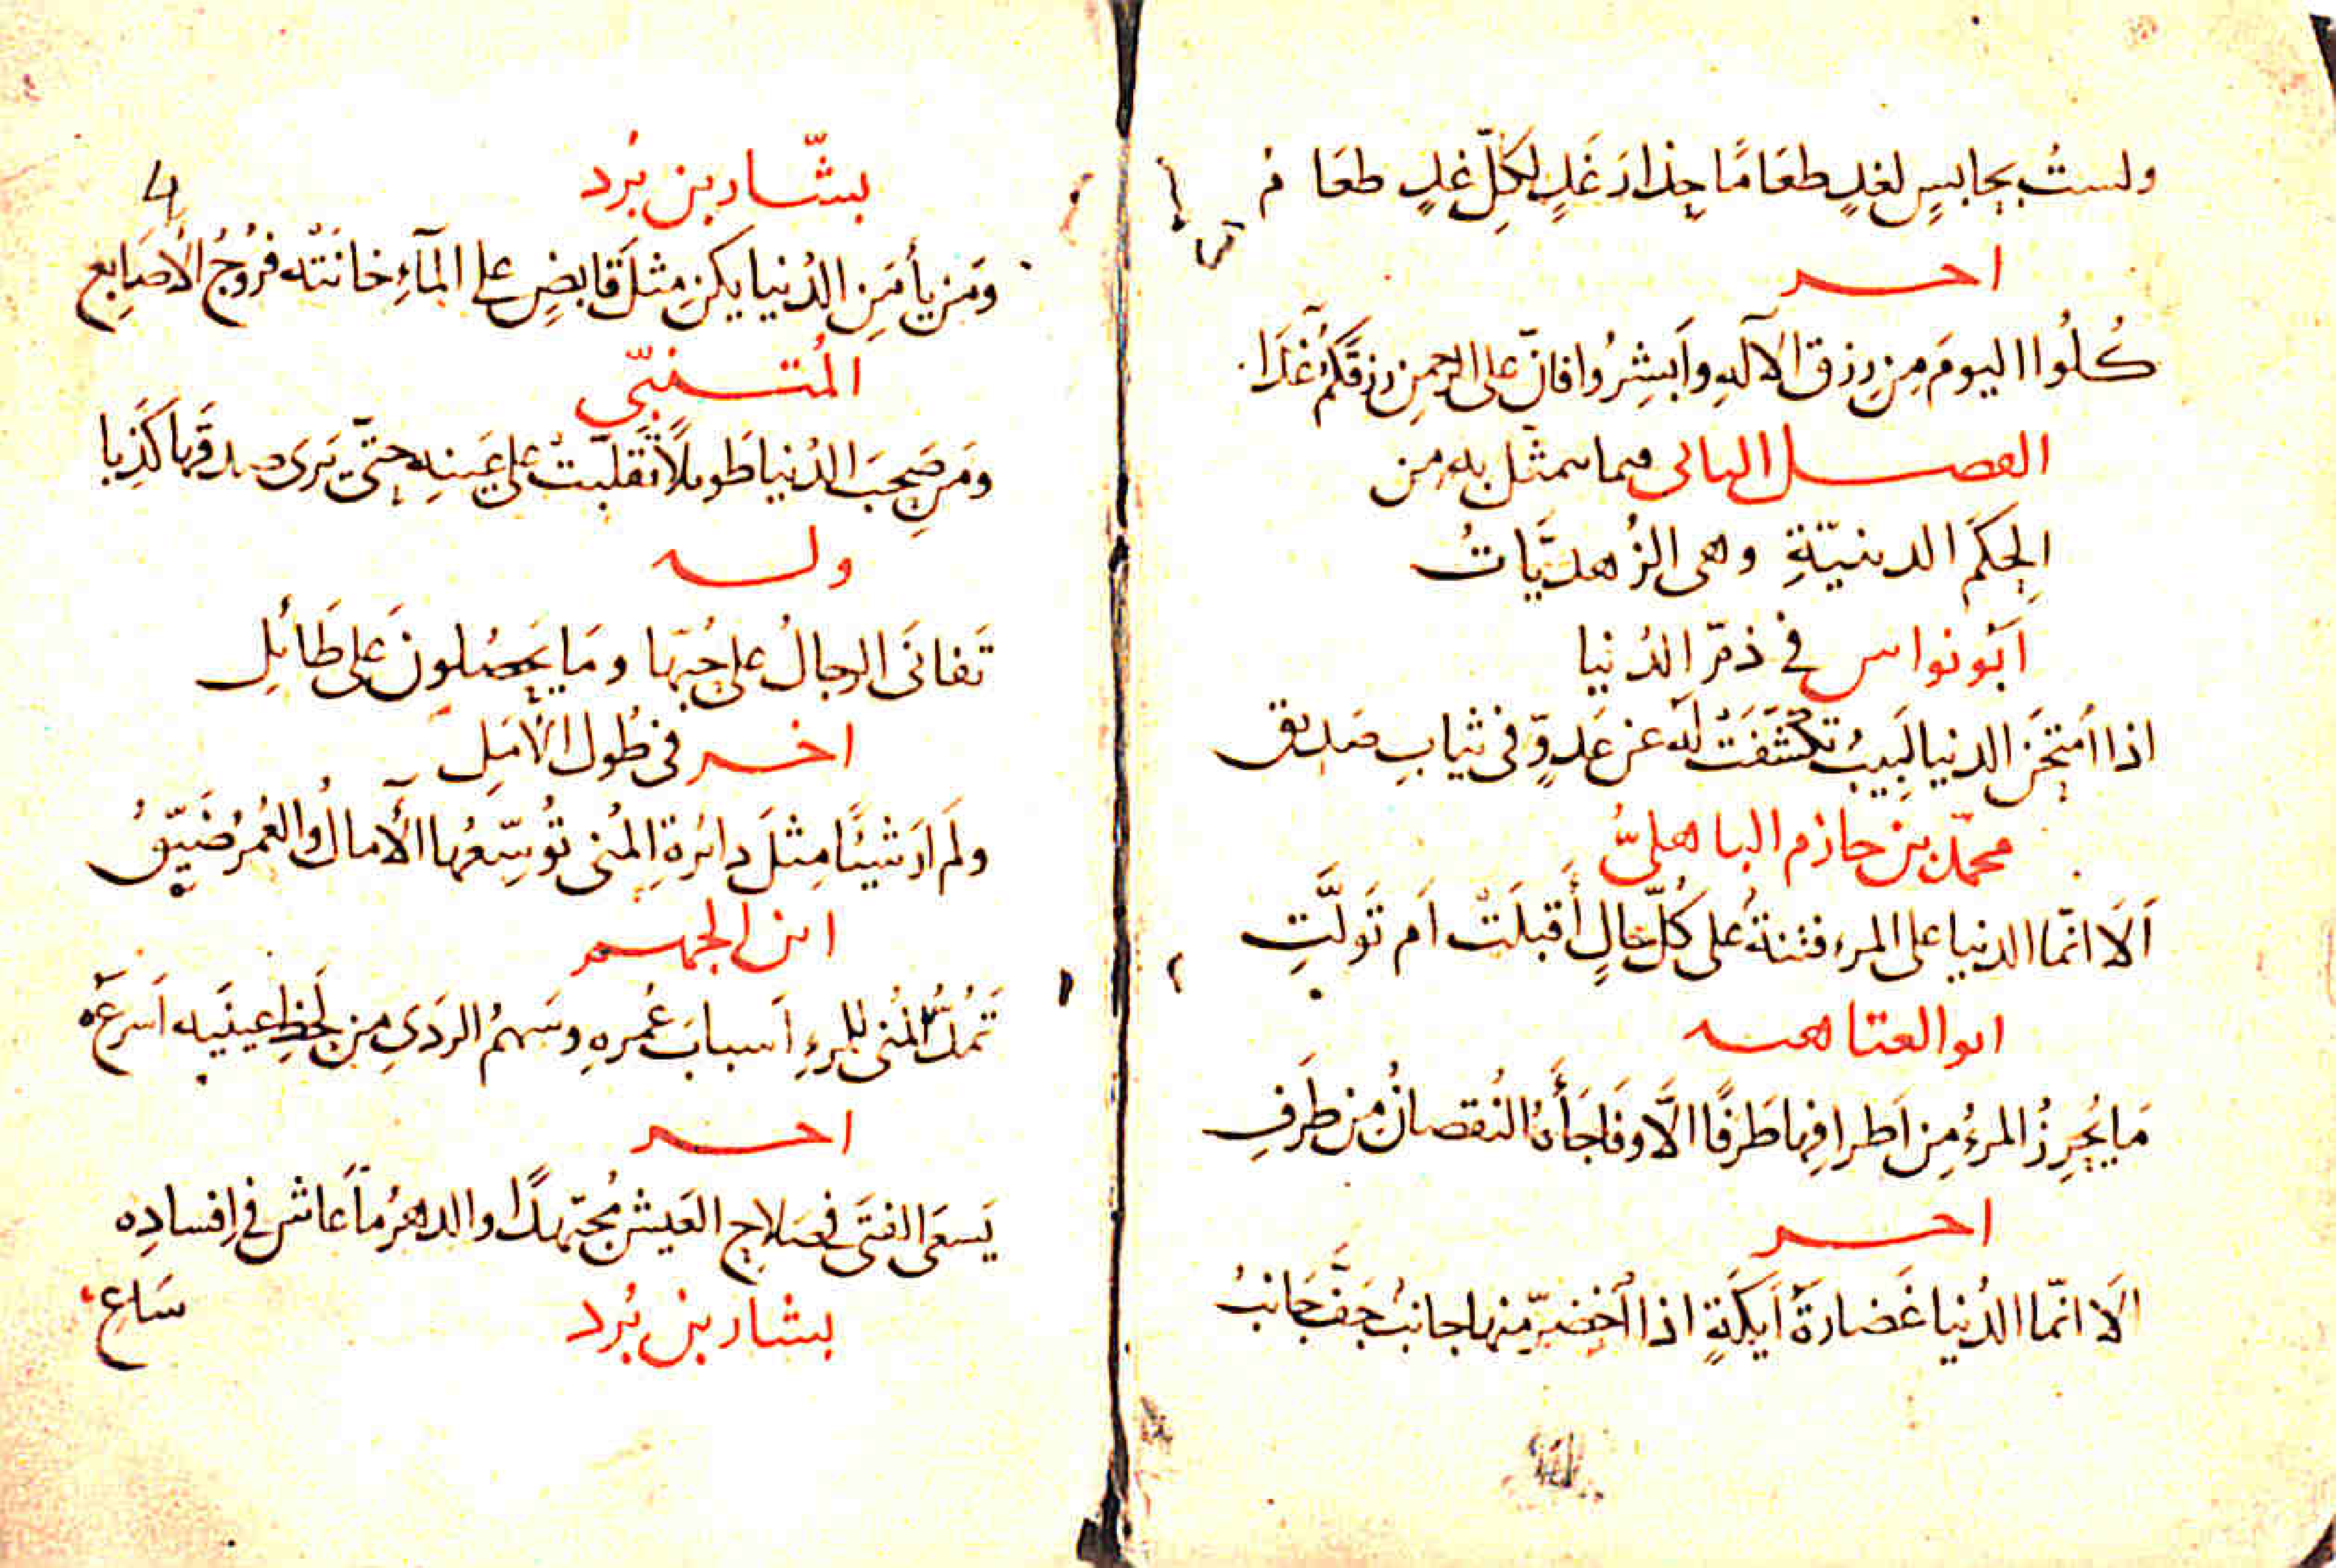 ولستُ بحابسٍ لغدٍ طعَامًا حِذارَ غَدٍ لكِلّ غدٍ طعَا مُ
اخـــر
كُلُوا اليومَ مِن رزق الآلهِ وأَبشِرُوا فانّ على الرحمنِ رزقَكُم غَدَا
الفصـــل الثانى فيما يتمثل به من
الحِكَمِ الدينيّةِ وهى الزُهديَّاتُ
اَبُو نواس فى ذمّ الدُنيا
اذا اَمتَحَنَ الدنيا لَبِيبُ تكشَّفَتْ لَه عن عَدوٍّ فى ثيابِ صَديق
محمّد بن حازم الباهلىُّ
اَلاَ انّما الدنيا على المرءِ فتنةُ على كُلّ حالٍ أَقبلَتْ اَم تَولَّتِ
ابو العتاهيـه
مَا يُحرِزُ المرءُ مِن اَطرافِها طَرفًا الَّا وفَاجَأَهُ النُقصانُ من طَرَفِ
اخـــر
الَا انّما الدُنيا غَضارَةُ اَيكَةٍ اذا اَخضرّ منها جانبُ جَفَّ جَانبُ
4
بشّار بن بُرد
ومَن يأمَنِ الدُنيا يكن مِثلَ قابضٍ على المآءِ خانَتْه فرُوجُ الاَصَابِع
المُتـــنبّى
ومَن صَحِبَ الدُنيا طَويلاً تقَلّبَتْ على عَينِه حتّى يَرى صدقَها كَذِبا
ولـــه
تَفانَى الرجالُ على حُبّها ومَا يَحصُلونَ على طَائلِ
اخـــر فى طُول الاَمَلِ
ولَم اَرَ شيئًا مِثلَ دائرةِ المُنى تُوسِّعُها الآمالُ والعُمرُ ضَيّقُ
ابن الجهـــم
تَمُدُّ المُنى للمرءِ اَسبابَ عُمرِهِ وسَهمُ الردَىِ من لَحظِ عينَيه اَسرعُ
اخـــر
يَسعَى الفتَى فى صَلاحِ العَيشِ مُجتَهدًا والدهرُ مَا عَاش فى اِفسادِه
سَاعِ
بشار بن بُرد